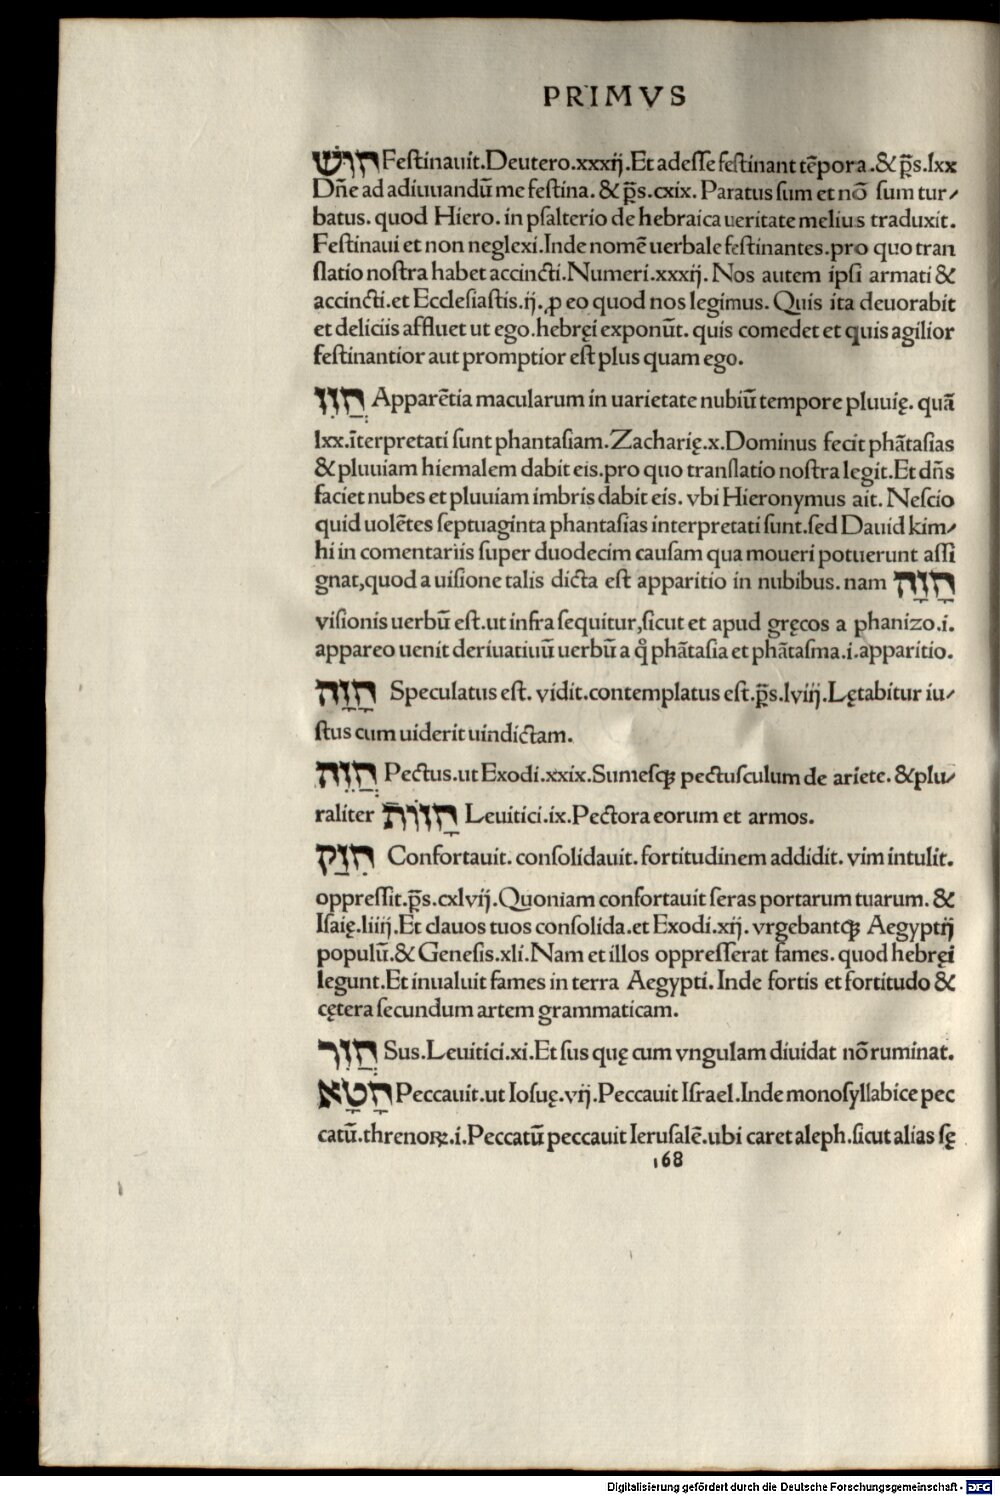 PRIMVS
חוּשׁ Festinauit.Deutero.xxxij.Et adesse festinant tẽpora.&p̃s.lxx
Dñe ad adiuuandũ me festina. & p̃s.cxix. Paratus sum et nõ sum tur-
batus. quod Hiero. in psalterio de hebraica ueritate melius traduxit.
Festinaui et non neglexi.Inde nomẽ uerbale festinantes.pro quo tran
slatio nostra habet accincti.Numeri.xxxij. Nos autem ipsi armati &
accincti.et Ecclesiastis.ij. ꝓ eo quod nos legimus. Quis ita deuorabit
et deliciis affluet ut ego.hebręi exponũt. quis comedet et quis agilior
festinantior aut promptior est plus quam ego.
חֲזִז Apparẽtia macularum in uarietate nubiũ tempore pluuię. quã
lxx.ĩterpretati sunt phantasiam.Zacharię.x.Dominus fecit phãtasias
& pluuiam hiemalem dabit eis.pro quo translatio nostra legit.Et dñs
faciet nubes et pluuiam imbris dabit eis. vbi Hieronymus ait. Nescio
quid uolẽtes septuaginta phantasias interpretati sunt.sed Dauid kim-
hi in comentariis super duodecim causam qua moueri potuerunt assi
gnat,quod a uisione talis dicta est apparitio in nubibus. nam חָזָה
visionis uerbũ est.ut infra sequitur,sicut et apud gręcos a phanizo.i.
appareo uenit deriuatiuũ uerbũ a q̃ phãtasia et phãtasma.i.apparitio.
חָזָה Speculatus est. vidit.contemplatus est.p̃s.lviij.Lętabitur iu-
stus cum uiderit uindictam.
חֲזֵה Pectus.ut Exodi.xxix.Sumesqꝫ pectusculum de ariete. & plu-
raliter חָזוֹת Leuitici.ix.Pectora eorum et armos.
חִזַּק Confortauit. consolidauit. fortitudinem addidit. vim intulit.
oppressit.p̃s.cxlvij.Quoniam confortauit seras portarum tuarum. &
Isaię.liiij.Et clauos tuos consolida.et Exodi.xij. vrgebantqꝫ Aegyptij
populũ.& Genesis.xli.Nam et illos oppresserat fames. quod hebręi
legunt.Et inualuit fames in terra Aegypti. Inde fortis et fortitudo &
cętera secundum artem grammaticam.
חֲזִר Sus.Leuitici.xi.Et sus quę cum vngulam diuidat nõ ruminat.
חָטָא Peccauit.ut Iosuę.vij.Peccauit Israel.Inde monosyllabice pec
catũ.threnoꝝ.i.Peccatũ peccauit Ierusalẽ.ubi caret aleph.sicut alias sę
168
Digitalisierung gefördert durch die Deutsche Forschungsgemeinschaft - DFG